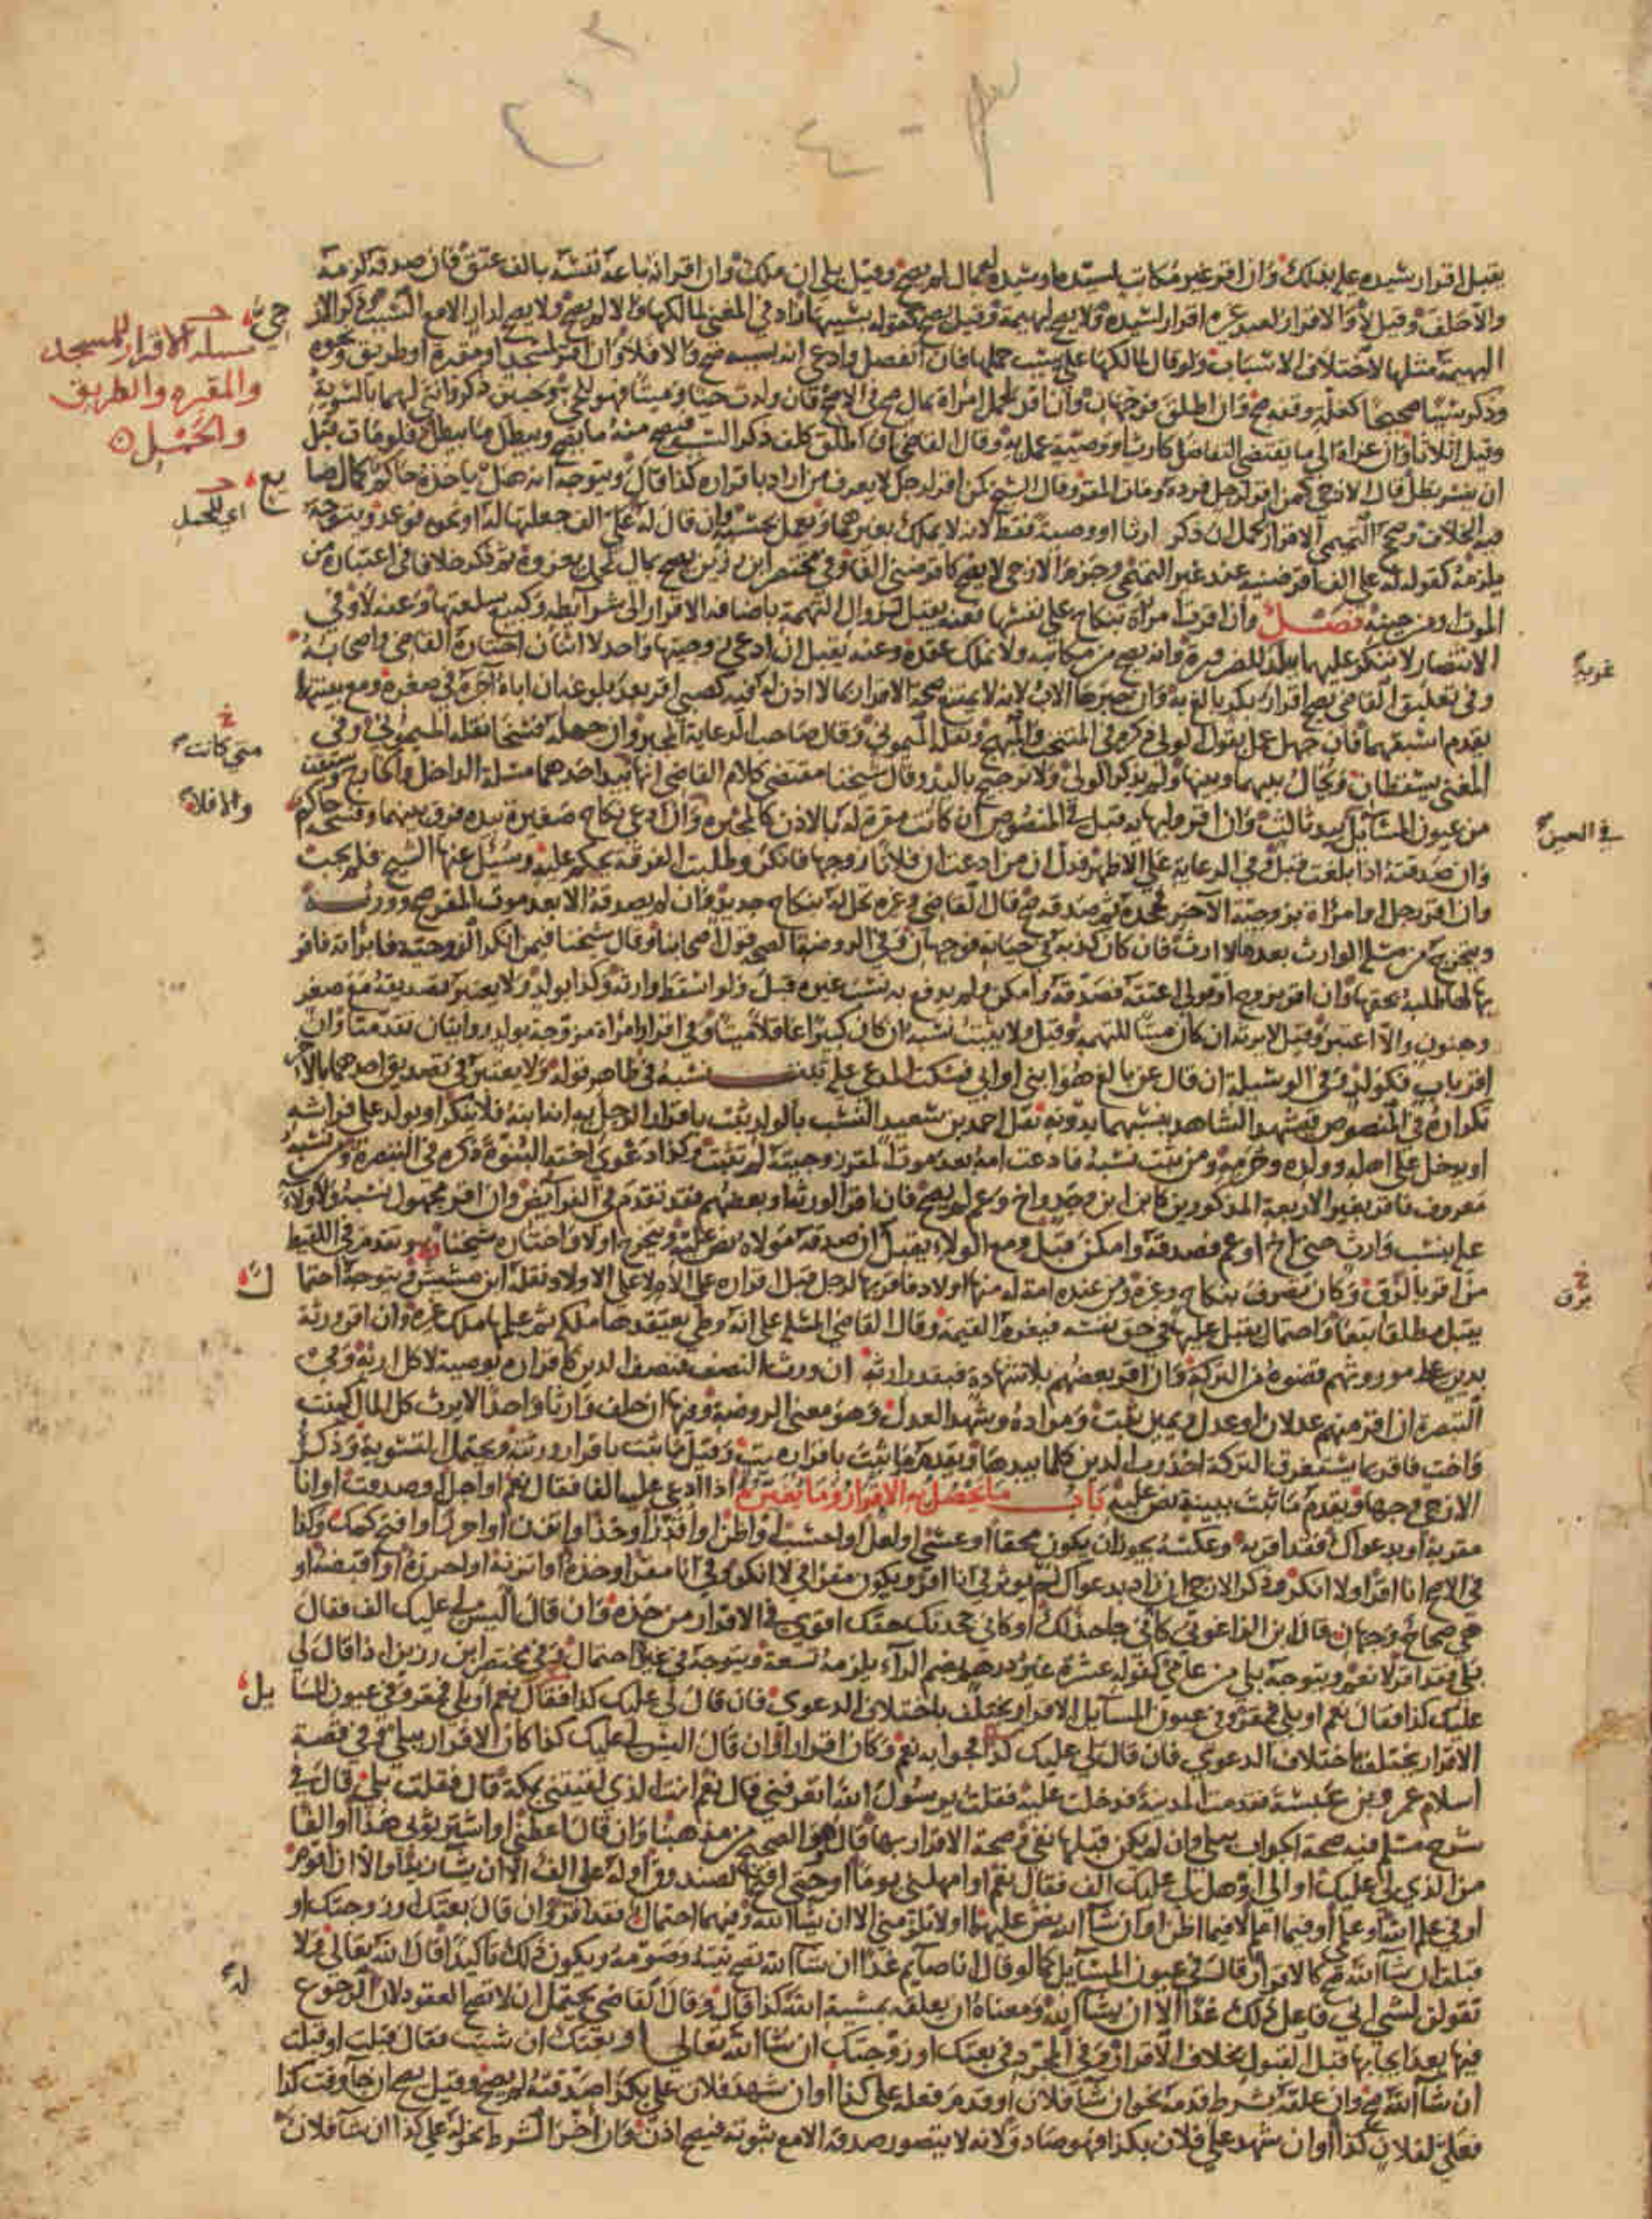 يقبل اقرار سيده عليه بذلك وان اقر غير مكاتب لسيده او سيده له بمال لم يصح وقيل بلى ان ملك وان اقر انه باعه نفسه بالف عتق فان صدقه لزمه
والا حلف وقيل لا والاقرار لعبد غيره اقرار لسيده ولا يصح لبهيمة وقيل يصح كقوله بسببها زاد في المغني لمالكها والا لم يصح ولا يصح لدار الا مع السبب
البهيمة مثلها لاختلاف الاسباب ولو قال لمالكها علي بسبب حملها فان انفصل وادعى انه بسببه صح والا فلا وان اقر لمسجد او مقبرة او طريق ونحوه
وذكر سببا صحيحا كغلة وقفه صح وان اطلق فوجهان وان اقر لحمل امراة بمال صح في الاصح فان ولدت حيا وميتا فهو للحي وحيين ذكر وانثى لهما بالسوية
وقيل اثلاثا وان عزاه الى ما يقتضي التفاضل كارث او وصية عمل به وقال القاضي ان اطلق كلف ذكر السبب فيصح منه ما يصح ويبطل ما يبطل فلو مات قبل
ان يفسر بطل قال الازجي كمن اقر لرجل فرده ومات المقر وقال الشيخ كمن اقر لرجل لا يعرف من اراد باقراره كذا قال ويتوجه انه هل ياخذه حاكم كمال ضا
فيه الخلاف وصحح التميمي الاقرار لحمل ان ذكر ارثا او وصية فقط لانه لا يملك بغيرهما ويعمل بحسبه وان قال له علي الف جعلتها له او نحوه فوعد ويتوجه
يلزمه كقوله له علي الف اقرضنيه عند غير التميمي وجزم الازجي لا يصح كاقرضني الفا وفي مختصر ابن رزين يصح بمال لحمل يعزوه ثم ذكر خلافا في اعتباره من
الموت او من حينه فصل وان اقرت امراة بنكاح على نفسها فعنه يقبل لزوال التهمة باضافة الاقرار الى شرائطه وكبيع سلعتها وعنه لا وفي
الانتصار لا ينكر عليهما ببلد للضرورة وانه يصح من مكاتبه ولا يملك عقده وعنه يقبل ان ادعى زوجيتها واحد لا اثنان اختاره القاضي واصحابه
وفي تعليق القاضي يصح اقرار بكر بالغ به وان جبرها الاب لانه لا يمتنع صحة الاقرار بما لا اذن له فيه كصبي اقر بعد بلوغه ان اباه آجره في صغره ومع بينتهما
يقدم اسبقهما فان جهل عمل بقول الولي ذكره في المنتخب والمبهج ونقله الميموني وقال صاحب الرعاية المجبر وان جهله فسخا نقله الميموني وفي
المغني يسقطان ويحال بينهما وبينها ولم يذكر الولي ولا ترجيح باليد وقال شيخنا مقتضى كلام القاضي انها بيد احدهما مسئلة الداخل والخارج سبقت
من عيون المسايل بيد ثالث وان اقر وليها به قبل في المنصوص ان كانت مقرة له بالاذن كالمجبره وان ادعى نكاح صغيرة بيده فرق بينهما وفسخه حاكم
وان صدقته اذا بلغت قبل وفي الرعاية على الاظهر فدل ان من ادعت ان فلانا زوجها فانكر وطلبت الفرقة يحكم عليه وسئل عنها الشيخ فلم يجب
وان اقر رجل او امراة بزوجية الآخر فجحده ثم صدقه صح قال القاضي وغيره تحل له بنكاح جديد وان لم يصدقه الا بعد موت المقر صح وورثه
ويتخرج من مسئلة الوارث بعدها لا ارث فان كان كذبه في حياته فوجهان وفي الروضة الصحيح قول اصحابنا وقال شيخنا فيمن انكر الزوجية فابراته فاقر
بها لها طلبه بحقها وان اقر بزوج او مولى اعتقه فصدقه وامكن ولم يدفع به نسب غيره قبل ولو اسقط وارثه وكذا بولد ولا يعتبر تصديقه مع صغر
وجنون والا اعتبر وقيل لا يرثه ان كان ميتا للتهمة وقيل ولا يثبت نسبه ان كان كبيرا عاقلا ميتا وفي اقرار امراة مزوجة بولد روايتان تقدمتا وان
اقر باب فكولد وفي الوسيلة ان قال عن بالغ هو ابني او ابي فسكت المدعى عليه ثبت نسبه في ظاهر قوله ولا يعتبر في تصديق احدهما بالآخر
تكراره في المنصوص فيشهد الشاهد بنسبهما بدونه نقل احمد بن سعيد النسب بالولد يثبت باقرار الرجل به انه ابنه فلا ينكر او يولد على فراشه
او يدخل على اهله وولده وحرمه ومن ثبت نسبه فادعت امه بعد موت المقر زوجيته لم تثبت وكذا دعوى اخته البنوة ذكره في التبصرة ومن نسبه
معروف فاقر بغير الاربعة المذكورين كابن ابن وجد واخ وعم لم يصح فان اقر الورثة او بعضهم فقد تقدم في الفرائض وان اقر مجهول نسبه ولا ولاء
عليه بنسب وارث حتى اخ او عم فصدقه وامكن قبل ومع الولاء يقبل ان صدقه مولاه نص عليه ويتخرج او لا واختاره شيخنا وتقدم في اللقيط
من اقر بالرق وكان تصرف بنكاح وغيره ومن عنده امة له منها اولاد فاقر بها لرجل قبل اقراره على الامة لا على الاولاد نقله ابن مشيش ويتوجه احتما
يقبل مطلقا تبعا واحتمال يقبل عليها في حق نفسه فيغرم القيمة وقال القاضي المسئلة على انه وطئ يعتقدها ملكه ثم علمها ملك غيره وان اقر ورثة
بدين على موروثهم قضوه من التركة وان اقر بعضهم بلا شهادة فبقدر ارثه ان ورث النصف فنصف الدين كاقراره بوصية لا كل ارثه وفي
التبصرة ان اقر منهم عدلان او عدل ويمين ثبت ومراده وشهد العدل وهو معنى الروضة وفيها ان خلف وارثا واحدا لا يرث كل المال كبنت
واخت فاقر بما يستغرق التركة اخذ رب الدين كلما بيدها ويقدم ما ثبت باقرار ميت وقيل ما ثبت باقرار ورثته ويحتمل التسوية وذكر
الازجي وجها ويقدم ما ثبت ببينة نص عليه باب ما يحصل به الاقرار وما يغيره اذا ادعى عليه الفا فقال نعم او اجل او صدقت او انا
مقر به او بدعواك فقد اقر به وعكسه يجوز ان يكون محقا او عسى او لعل او احسب او اظن او اقدر او خذ او اتزن او احرز او افتح كمك وكذا
في الاصح انا اقر او لا انكر وذكر الازجي ان زاد بدعواك لم يؤثر في انا اقر ويكون مقرا في لا انكر وفي انا مقر او خذه او اتزنه او احرزه او اقبضه او
هي صحاح وجهان قال ابن الزاغوني كاني جاحد لك او كاني جحدتك حقك اقوى في الاقرار من خذه وان قال اليس لي عليك الف فقال
بلى فقد اقر لا نعم ويتوجه بلى من عامي كقوله عشرة غير درهم بضم الراء يلزمه تسعة ويتوجه في غيره احتمال وفي مختصر ابن رزين اذا قال لي
عليك كذا فقال نعم او بلى فمقر وفي عيون المسايل الاقرار يختلف باختلاف الدعوى فان قال لي عليك كذا فقال نعم او بلى فمقر وفي عيون المسا
الاقرار يختلف باختلاف الدعوى فان قال لي عليك كذا فجوابه نعم وكان اقرارا وان قال اليس لي عليك كذا كان الاقرار ببلى وفي قصة
اسلام عمرو بن عبسة فقدمت المدينة فدخلت عليه فقلت يا رسول الله اتعرفني قال نعم انت الذي لقيتني بمكة قال فقلت بلى قال في
شرح مسلم فيه صحة الجواب ببلى وان لم يكن قبلها نفي وصحة الاقرار بها قال وهو الصحيح من مذهبنا وان قال اعطني او اشتر ثوبي هذا او الفا
من الذي لي عليك او الي او هل لي عليك الف فقال نعم او امهلني يوما او حتى افتح الصندوق او له علي الف الا ان يشا زيد او الا ان اقوم
او في علم الله او علمي او فيما اعلم لا فيما اظن او ان شا الله نص عليهما او لا تلزمني الا ان يشا الله وفيهما احتمال فقد اقر وان قال بعتك او زوجتك او
قبلت ان شا الله صح كالاقرار قال في عيون المسايل كما لو قال انا صايم غدا ان شا الله تصح نيته وصومه ويكون ذلك تاكيدا قال الله تعالى ولا
تقولن لشيء اني فاعل ذلك غدا الا ان يشا الله ومعناه ان يعلقه بمشيئة الله كذا قال وقال القاضي يحتمل ان لا تصح العقود لان له الرجوع
فيها بعد ايجابها قبل القبول بخلاف الاقرار وفي المجرد في بعتك او زوجتك ان شا الله تعالى او بعتك ان شيت فقال قبلت او قبلت
ان شا الله صح وان علقه بشرط قدمه نحو ان شا فلان او قدم فعله علي كذا او ان شهد فلان علي بكذا صدقته لم يصح وقيل يصح ان جا وقت كذا
فعلي لفلان كذا او ان شهد علي فلان بكذا فهو صادق لانه لا يتصور صدقه الا مع ثبوته فيصح اذن وان اخر الشرط نحو له علي كذا ان شا فلان
مسئلة الاقرار للمسجد
والمقبره والطريق
والحمل
يع
اي للحمل
متى كانت
والا فلا
غريبة
في الحين
برق
ل
يل
له